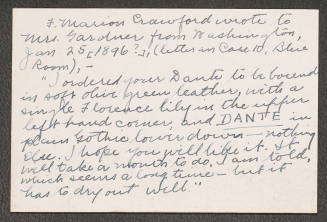 F. Marion Crawford wrote to
Mrs. Gardner from Washington,
Jan 25, [1896?], (letter in Case 10, Blue
Room), —
"I ordered your Dante to be bound
in soft olive green leather, with a
single Florence lily in the upper
left hand corner, and DANTE in
plain Gothic lower down — nothing
else. I hope you will like it. It
will take a month to do, I am told,
which seems a long time — but it
has to dry out well."